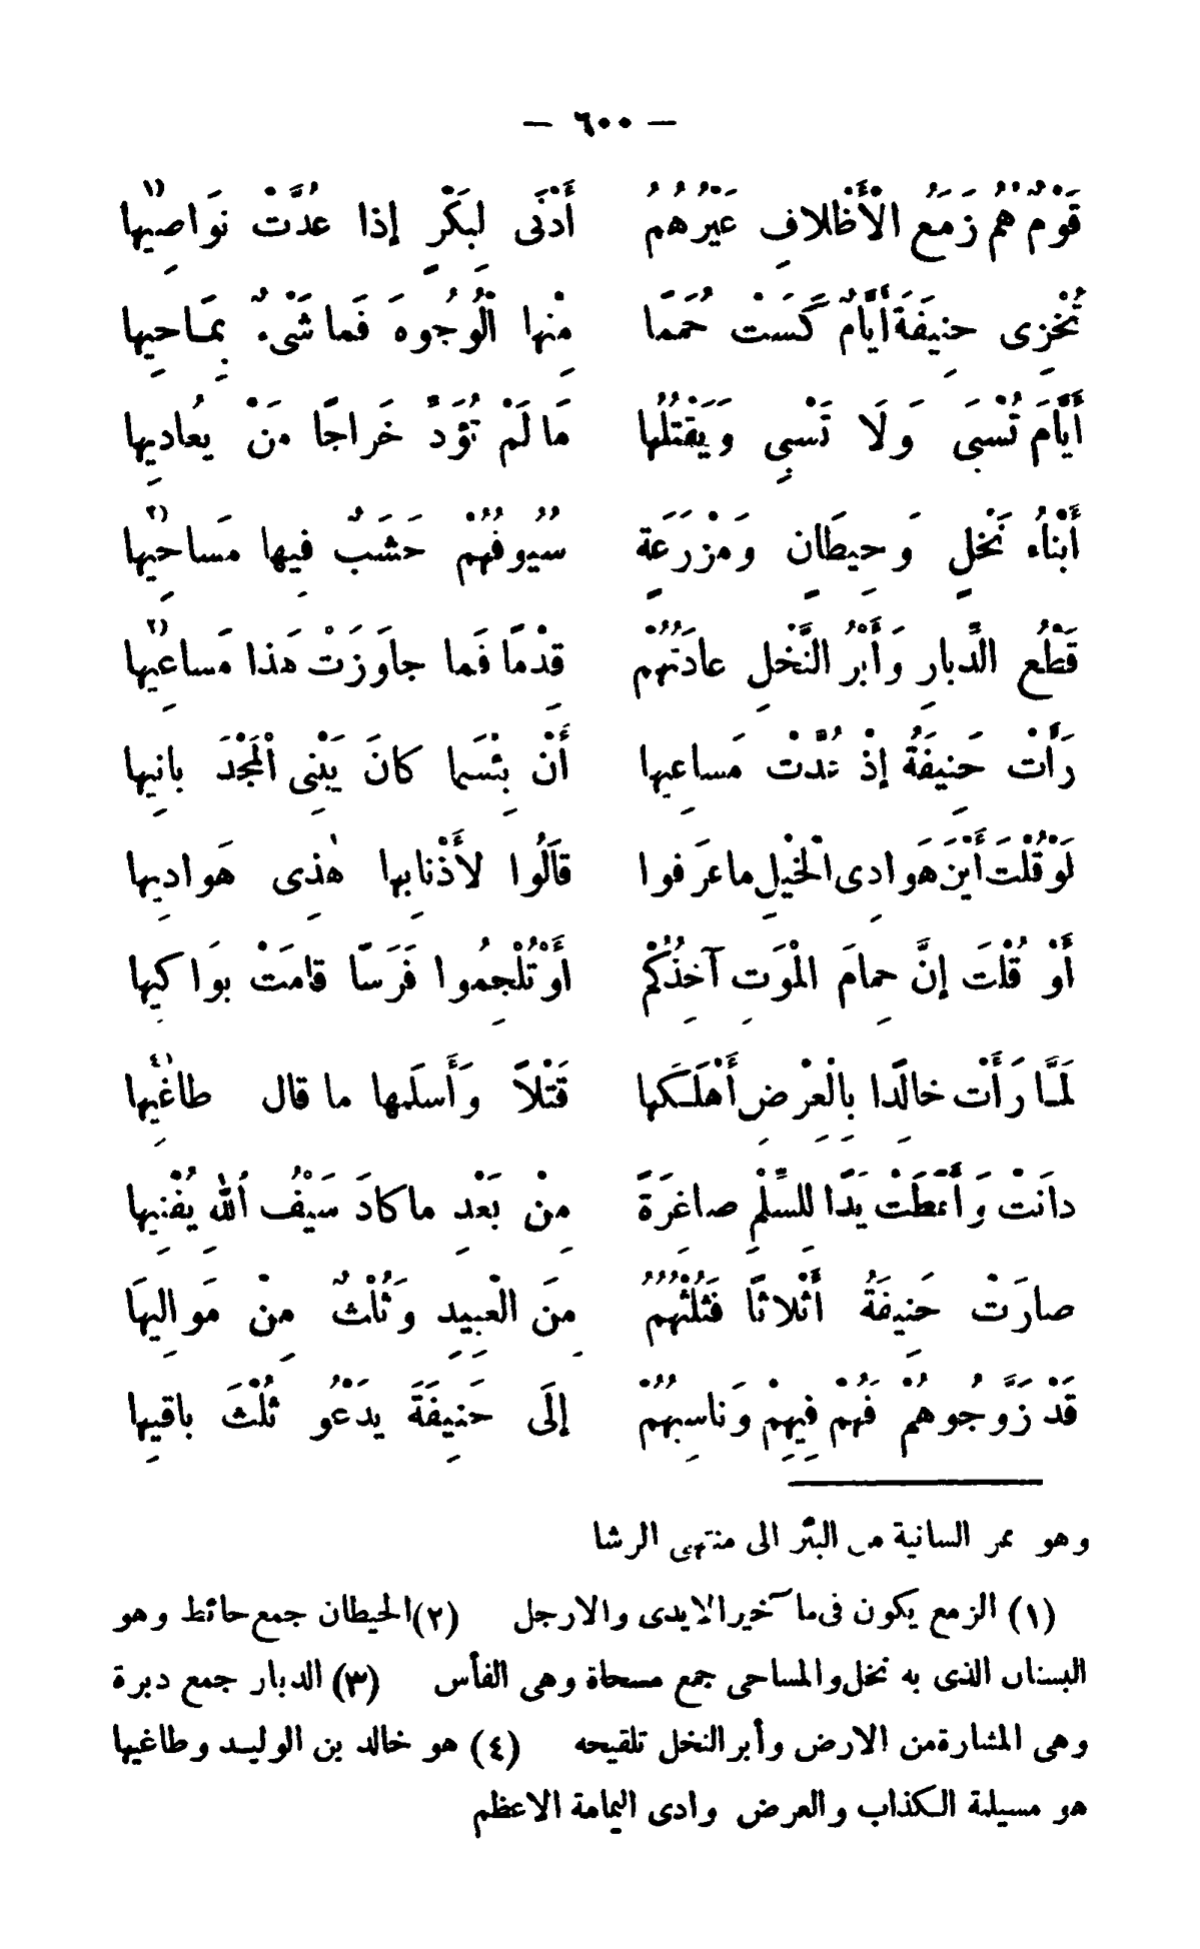 — ٦٠٠ —
قَوْمٌ هُمُ زَمَعُ الْأَظْلافِ غَيْرُهُمُ أَدْنَى لِبَكْرٍ إذا عُدَّتْ نَوَاصِيها (١)
تُخْزِى حنِيفَةَ أَيَّامٌ كَسَتْ حُمَمًا مِنْها الْوُجُوهَ فَما شَىْءٌ بِمَاحِيها
أَيَّامَ تُسْبَى وَلَا تَسْبِى وَيَقْتُلُها مَا لَمْ تُؤَدِّ خَراجًا مَنْ يُعادِيها
أَبْناءُ نَخْلٍ وَحِيطَانٍ وَمَزْرَعَةٍ سُيُوفُهُمْ خَشَبٌ فِيها مَساحِيها (٢)
قَطْعُ الدِّبارِ وَأَبْرُ النَّخْلِ عادَتُهُمْ قِدْمًا فَما جاوَزَتْ هَذا مَساعِيها (٣)
رَأَتْ حَنِيفَةُ إذْ عُدَّتْ مَساعِيها أَنْ بِئْسَما كانَ يَبْنِى الْمَجْدَ بانِيها
لَوْ قُلْتَ أَيْنَ هَوادِى الْخَيْلِ ما عَرَفوا قَالُوا لأَذْنابِها هٰذِى هَوادِيها
أَوْ قُلْتَ إنَّ حِمامَ الْمَوْتِ آخِذُكُمْ أَوْ تُلْجِمُوا فَرَسًا قامَتْ بَوَاكِيها
لَمَّا رَأَتْ خالِدًا بِالْعِرْضِ أَهْلَكَها قَتْلاً وَأَسلَمها ما قال طاغِيها (٤)
دانَتْ وَأَعْطَتْ يَدًا لِلسِّلْمِ صاغِرَةً مِنْ بَعْدِ ما كادَ سَيْفُ اللهِ يُفْنِيها
صارَتْ حَنِيفَةُ أَثْلاثًا فَثُلْثُهُمُ مِنَ الْعَبِيدِ وَثُلْثٌ مِنْ مَوالِيهَا
قَدْ زَوَّجُوهُمْ فَهُمْ فِيهِمْ وَناسِبُهُمْ إلَى حَنِيفَةَ يَدْعُو ثُلْثَ باقِيها
وهو ممر السانية من البئر الى منتهى الرشا
(١) الزمع يكون فى مآ خير الايدى والارجل (٢) الحيطان جمع حائط وهو
البستان الذى به نخل والمساحى جمع مسحاة وهى الفأس (٣) الدبار جمع دبرة
وهى المشارة من الارض وأبر النخل تلقيحه (٤) هو خالد بن الوليد وطاغيها
هو مسيلمة الكذاب والعرض وادى اليمامة الاعظم